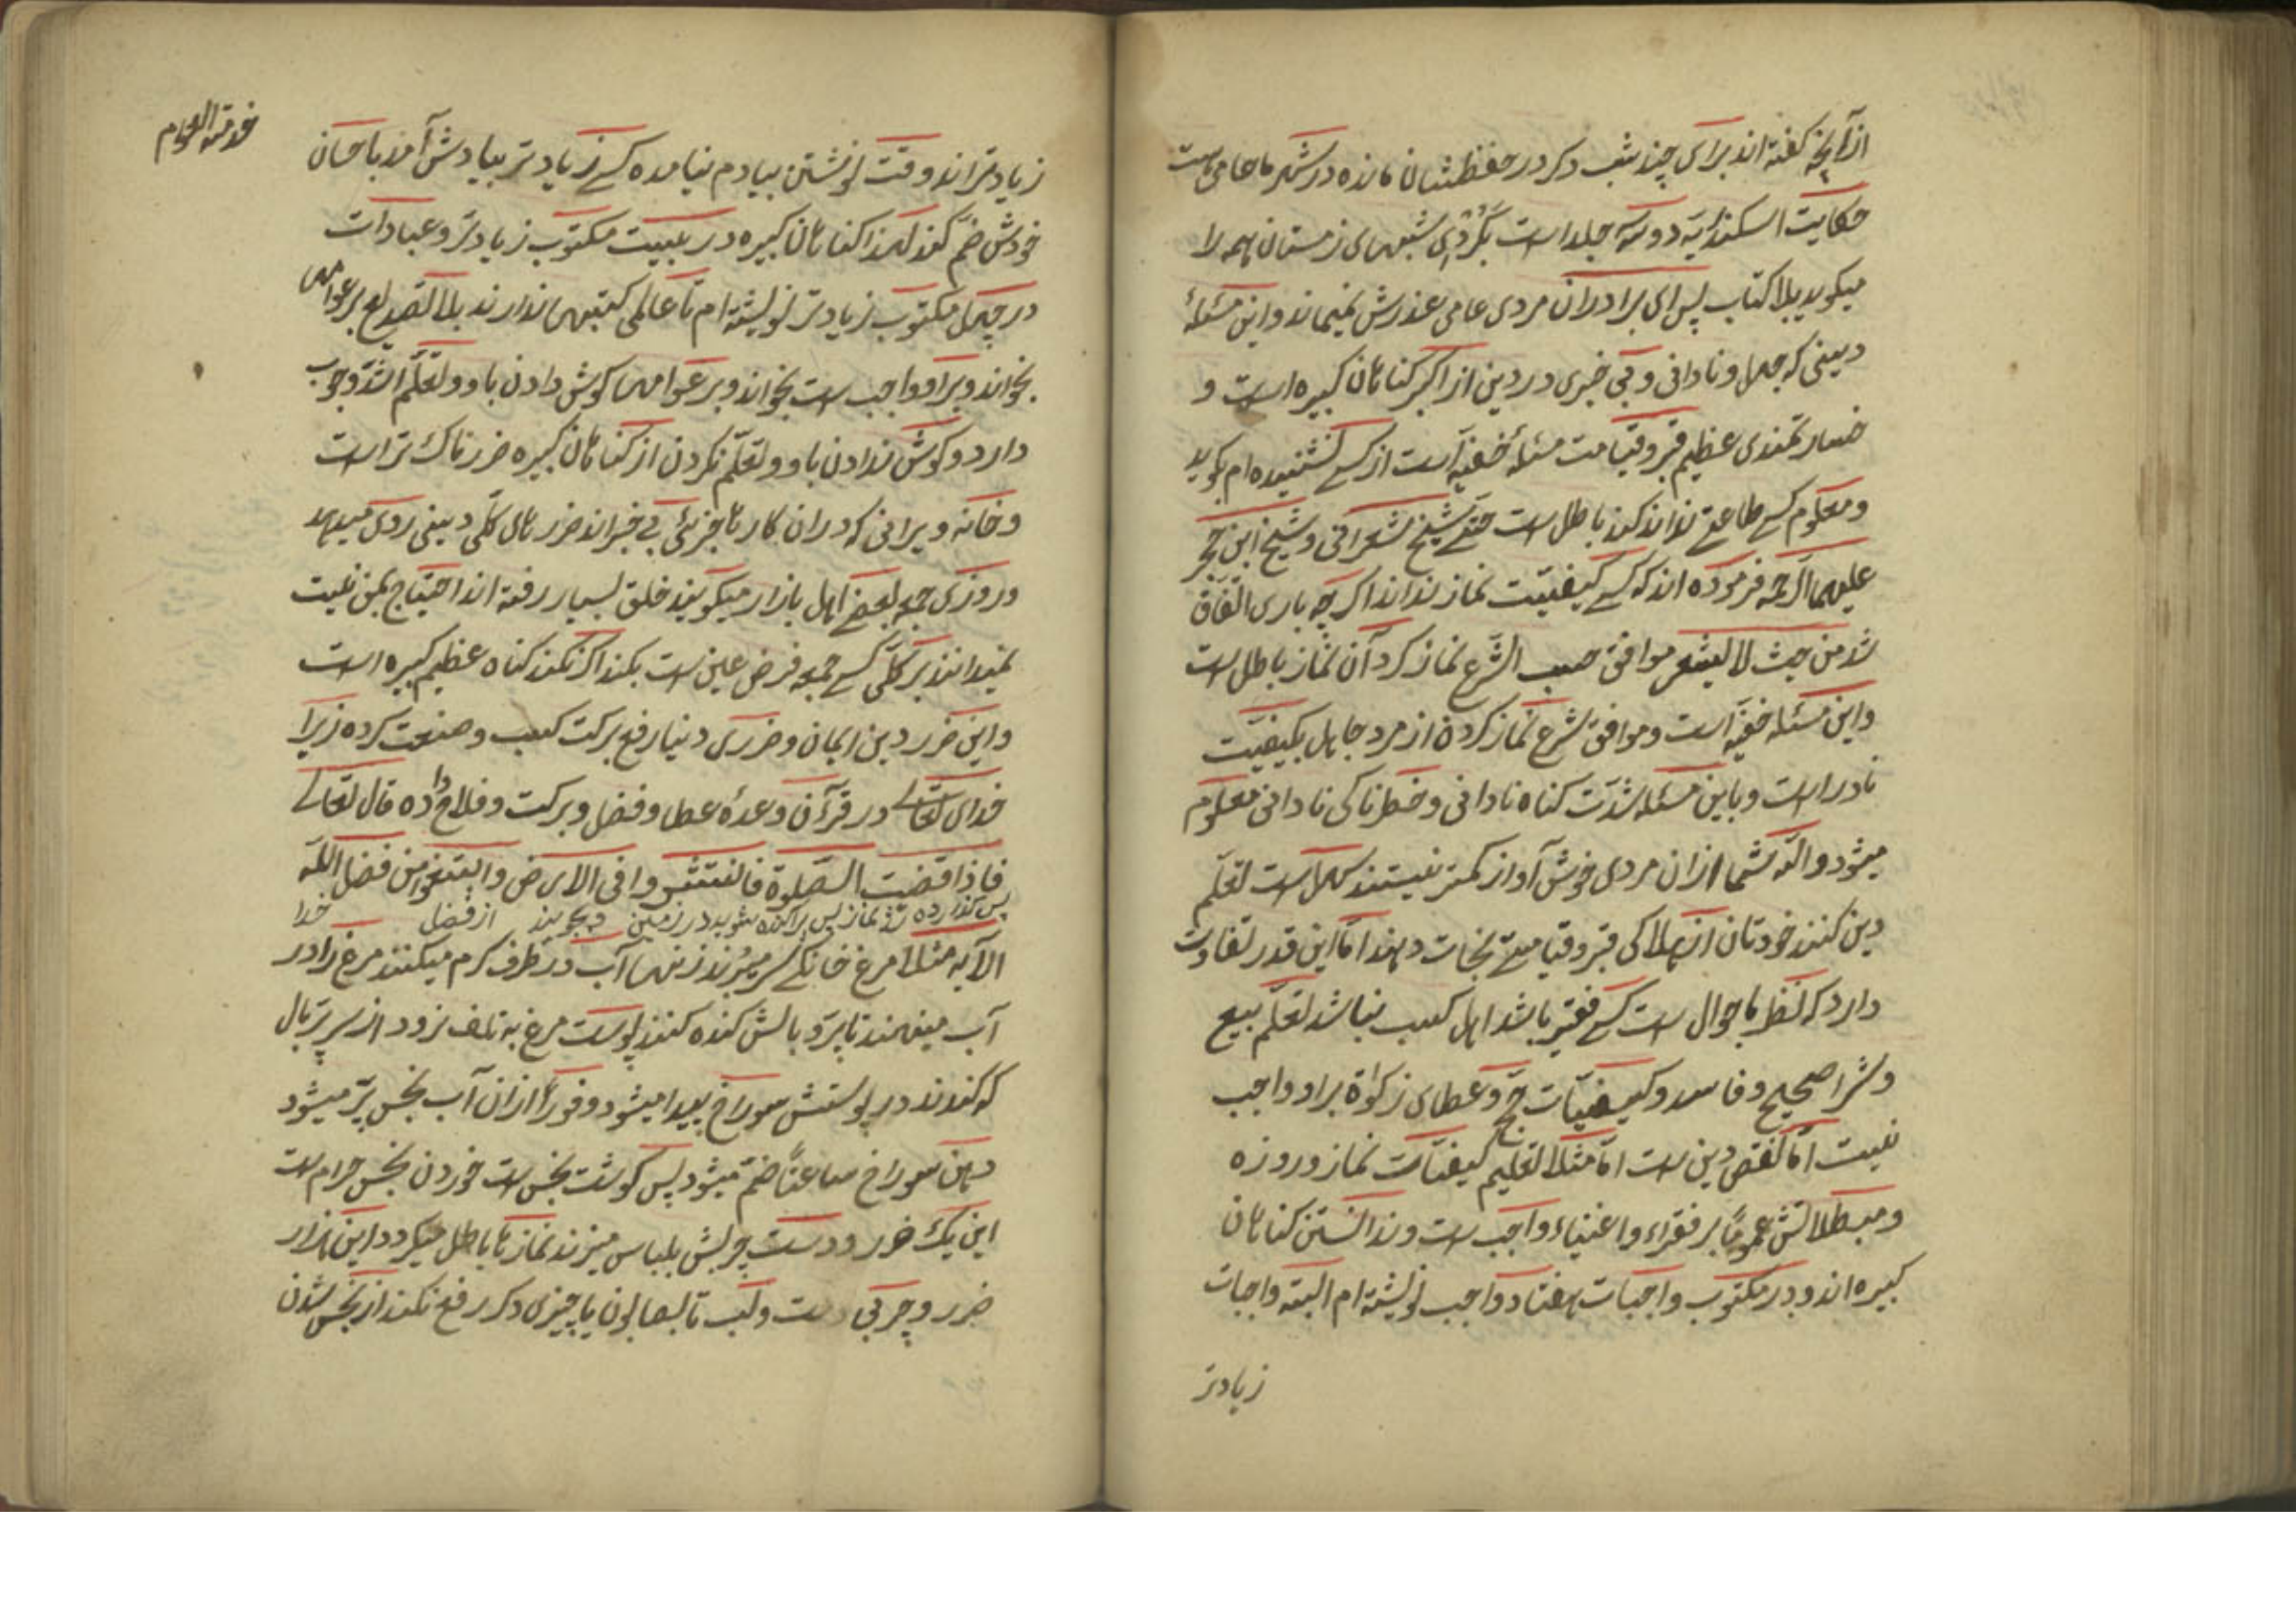 ازآنچه گفته اند برای چند شب دکر در حفظشان مانده در شهر ما عامی هست
حکایت اسکندریه دو سه جلد است بکردی شبهای زمستان همه را
میکوید بلا کتاب پس ای برادران مردی عامی عذرش نمیماند و این مسئلهٔ
دینی که جهل و نادانی و بی خبری در دین از اکبر کناهان کبیره است و
خسارتمندی عظیم قبر و قیامت مسئلهٔ خفیه است از کسے نشنیده ام بکوید
و معلوم کسے طاعتے نداند کند باطل است حتے شیخ شعرانی و شیخ ابن حجر
علیهما الرحمه فرموده اند که کسے کیفیّت نماز نداند اکر چه باری اتفاق
شد من حیث لا یشعر موافق حسب الشرع نماز کرد آن نماز باطل است
و این مسئله خفیه است و موافق شرع نماز کردن از مرد جاهل بکیفیّت
نادر است و باین مسئله شدّت کناه نادانی و خطرناکی نادانی معلوم
میشود والله شما ازان مردی خوش آواز کمتر نیستند سهل است تعلّم
دین کنند خودتان از هلاکی قبر و قیامتے نجات دهند امّا این قدر تفاوت
دارد که نظر باحوال است کسے فقیر باشد اهل کسب نباشد تعلّم بیع
و شرا صحیح و فاسد و کیفیّات حجّ و عطای زکواة براو واجب
نیست امّا نقص دین است امّا مثلا تعلیم کیفیّات نماز و روزه
و مبطلاتش عموماً بر فقراء و اغنیاء واجب است و ندانستن کناهان
کبیره اند و در مکتوب واجبات هفتاد واجب نویشته ام البته واجبات
زیادتر
زیادتر اند وقت نوشتن بیادم نیامده کسے زیادتر بیادش آمد باحسان
خودش ضم کند لهذا کناهان کبیره در بیست مکتوب زیادتر و عبادات
در چهل مکتوب زیادتر نویشته ام تا عالمی کتبهی ندارند بلا تصدیع بر عوامهی
بخواند و براو واجب است بخواند و بر عوامها کوش دادن باو و تعلّم اشدّ وجوب
دارد و کوش ندادن باو و تعلّم نکردن از کناهان کبیره ضررناک تر است
و خانه ویرانی که دران کارها جزئی بے خبراند ضررهای کلّی دینی روی میدهد
و روزی جمعه بعضے اهل بازار میکویند خلق بسیار رفته اند احتیاج بمن نیست
نمیدانند بر کلّی کسے جمعه فرض عین است بکند اکر نکند کناه عظیم کبیره است
و این ضرر دین ایمان و ضرری دنیا رفع برکت کسب و صنعت کرده زیرا
خدای تعالے در قرآن وعدهٔ عطا و فضل و برکت و فلاح داده قال تعالے
فاذا قضیت الصّلوة فانتشروا فی الارض وابتغوا من فضل اللّه
پس کذارده شد نماز پس پراکنده شوید در زمین و بجویند از فضل خدا
الآیه مثلا مرغ خانکے سر میبرند زنها آب در ظرف کرم میکنند مرغ را در
آب مینهند تا پر و بالش کنده کنند پوست مرغ به تلف نرود از سر پر بال
که کندند در پوستش سوراخ پیدا میشود و فوراً ازان آب نجس پر میشود
دهن سوراخ ساعتاً ضم میشود پس کوشت نجس است خوردن نجس حرام است
این یک ضرر و دست چربش بلباس میزند نمازها باطل میکردد این هزار
ضرر و چربی دست ولب تا بصابون یا چیزی دکر رفع نکند از نجس شدن